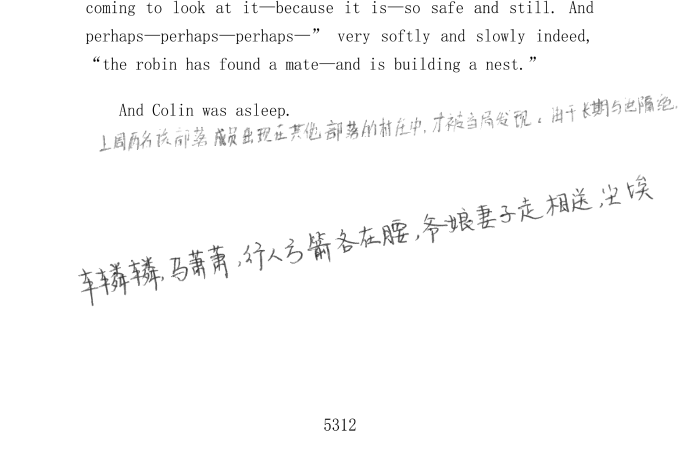 coming to look at it—because it is—so safe and still. And
perhaps—perhaps—perhaps—” very softly and slowly indeed,
“the robin has found a mate—and is building a nest.”
And Colin was asleep.
上周两名该部落成员出现在其他部落的村庄中,才被当局发现。由于长期与世隔绝,
车辚辚,马萧萧,行人弓箭各在腰,爷娘妻子走相送,尘埃
5312